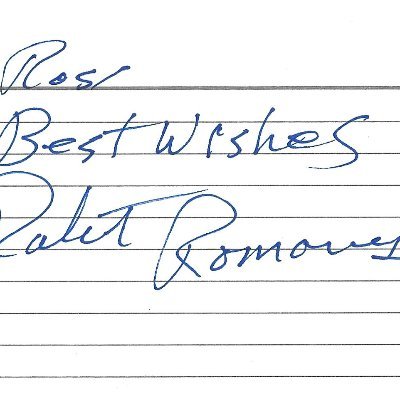 Ross
Best Wishes
Robert Romanus